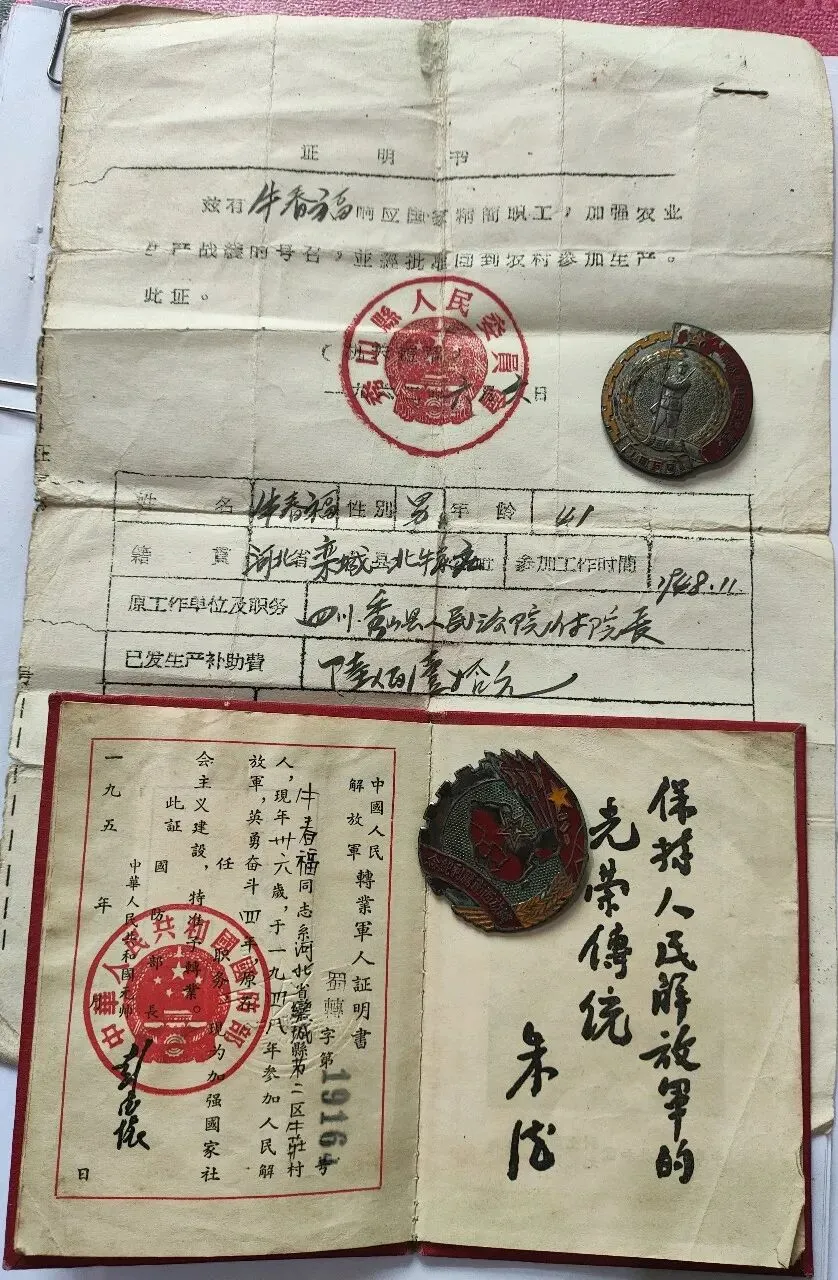 证明书
兹有牛春福响应国家精简职工,加强农业
生产战线的号召,並经批准回到农村参加生产。
此证。
秀山縣人民委員會
日
姓名 牛春福 性别 男 年龄 41
籍貫 河北省栾城县北牛 参加工作时間 1948.11
原工作单位及职务 四川秀山县人民法院付院长
已发生产补助費 陆佰壹拾元
中國人民
解放軍
轉業軍人証明書
蜀轉字第19164号
牛春福同志系河北省欒城縣第二区牛莊村
人,現年卅六歲,于一九四八年参加人民解
放軍,英勇奋斗四年,原
任 职务,現为加强國家社
会主义建設,特准予轉業。
此証
國防部長
中華人民共和國元帅
彭德懷
一九五 年 月 日
中華人民共和國國防部
保持人民解放軍的
光榮傳統
朱德